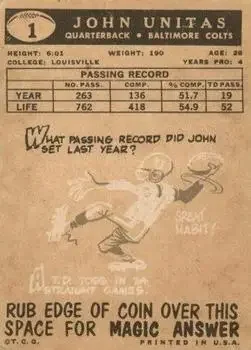 1
JOHN UNITAS
QUARTERBACK • BALTIMORE COLTS
HEIGHT: 6:01 WEIGHT: 190 AGE: 26
COLLEGE: LOUISVILLE YEARS PRO: 4
PASSING RECORD
NO. PASS. COMP. % COMP. TD PASS
YEAR 263 136 51.7 19
LIFE 762 418 54.9 52
WHAT PASSING RECORD DID JOHN
SET LAST YEAR?
GREAT
HABIT!
A T.D. TOSS IN
STRAIGHT GAMES.
RUB EDGE OF COIN OVER THIS
SPACE FOR MAGIC ANSWER
©T.C.G. PRINTED IN U.S.A.